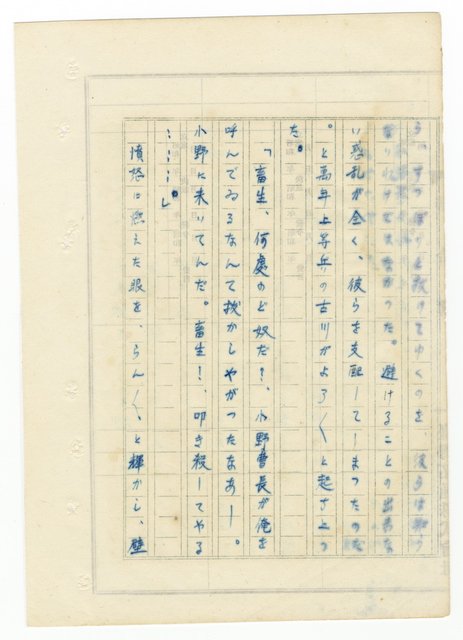 うにすつぽりと抜けてゆくのを、彼らは知ら
なければならなかつた。避けることの出来な
い惑乱が全く、彼らを支配してしまつたのだ
。と萬年上等兵の古川がよろ〱と起き上つ
た。
「畜生、何處のど奴だ？、小野曹長が俺を
呼んでゐるなんて抜かしやがつたなあー。
小野に来いてんだ。畜生！、叩き殺してやる
……。」
憤怒に燃えた眼を、らん〱、と輝かし、壁